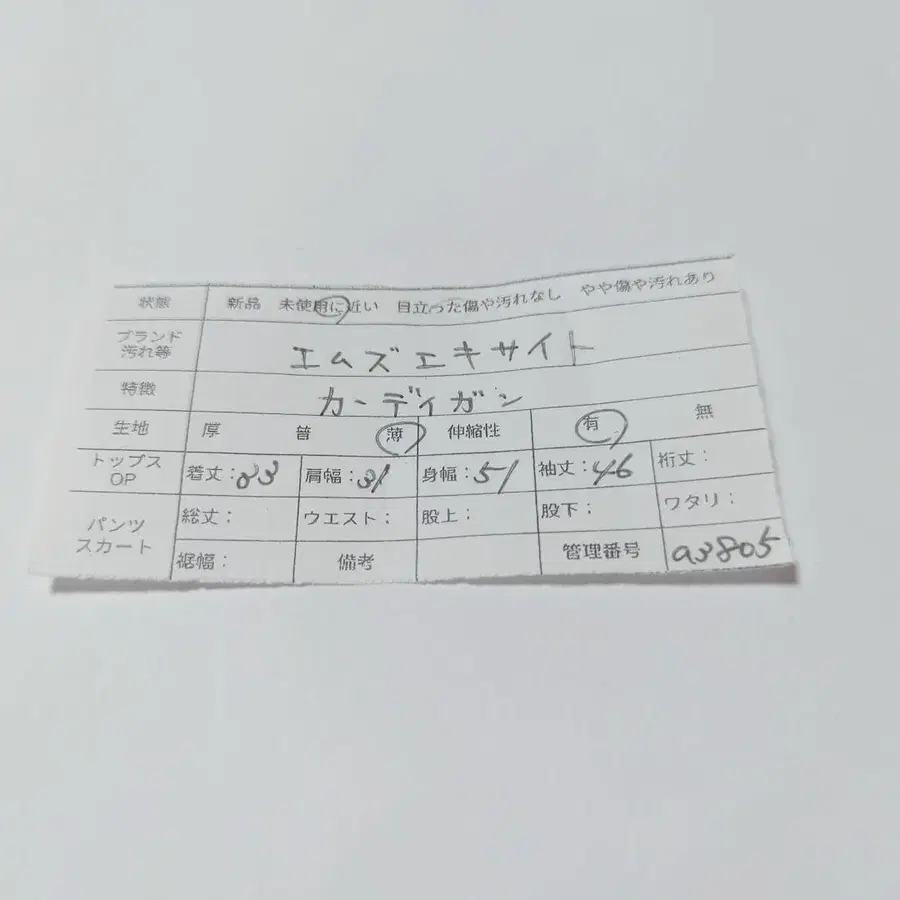 状態 新品 未使用に近い 目立った傷や汚れなし やや傷や汚れあり
ブランド
汚れ等 エムズエキサイト
特徴 カーディガン
生地 厚 普 薄 伸縮性 有 無
トップス
OP 着丈:83 肩幅:31 身幅:51 袖丈:46 裄丈:
パンツ
スカート 総丈: ウエスト: 股上: 股下: ワタリ:
裾幅: 備考 管理番号 a3805